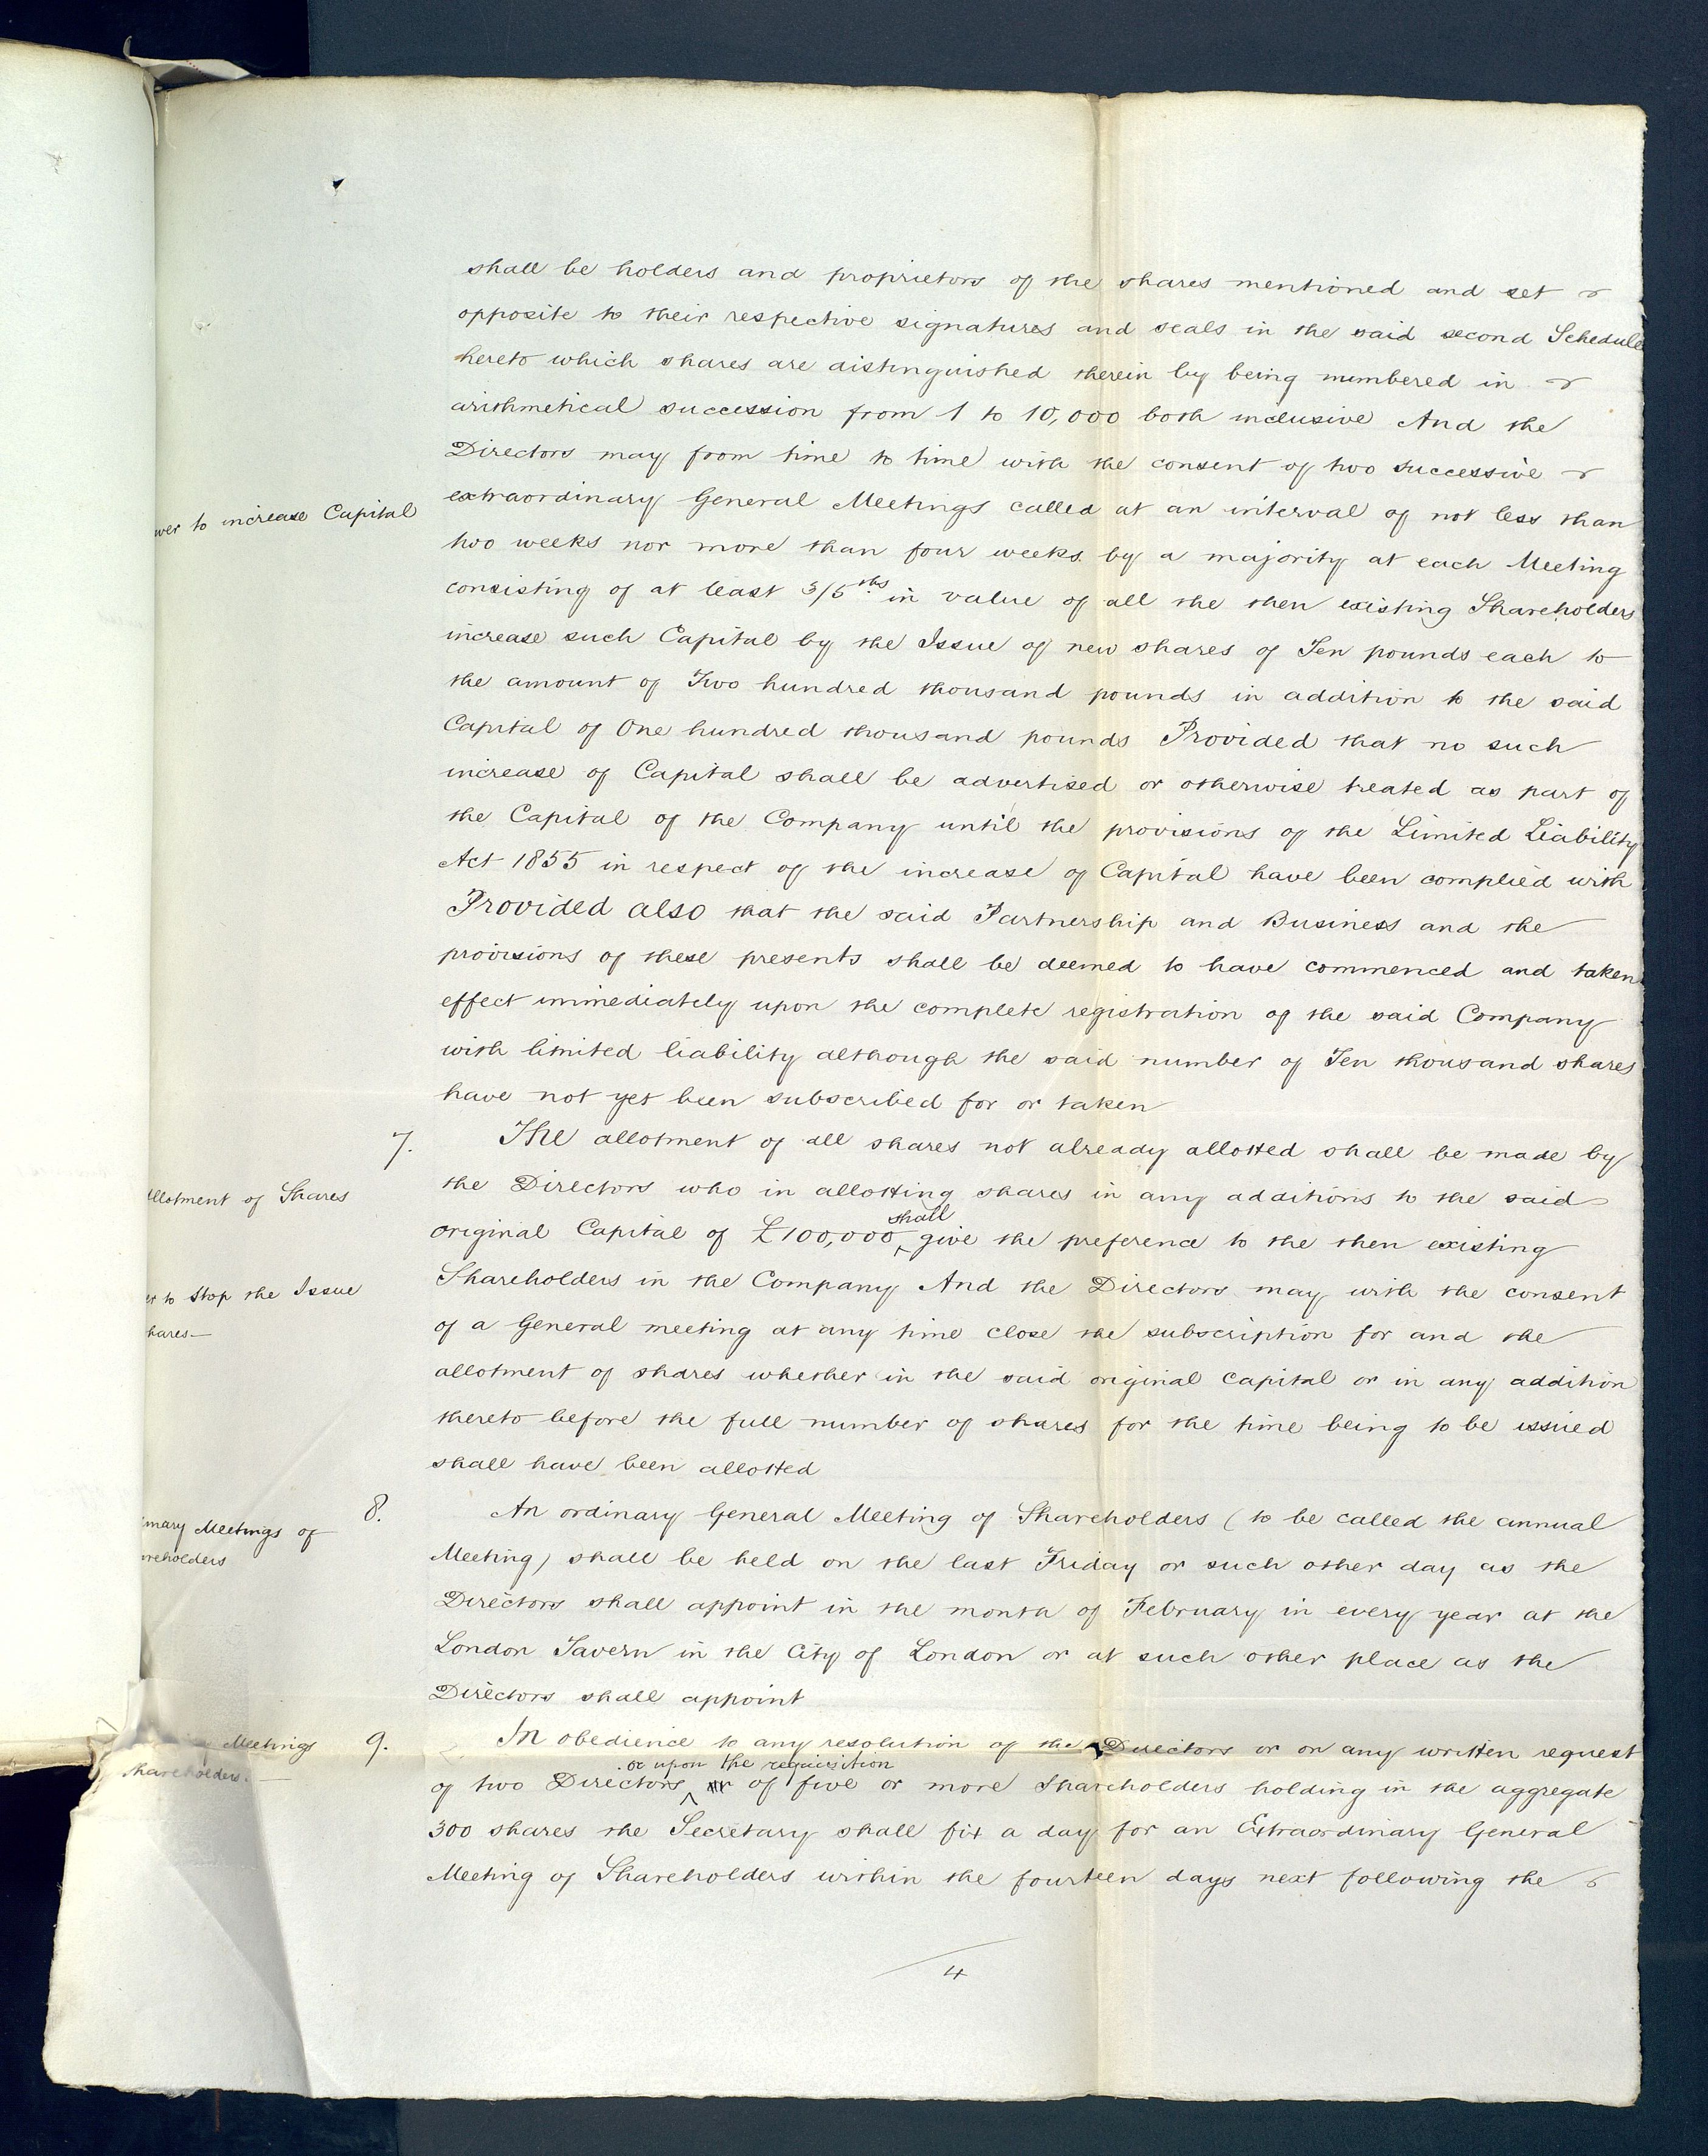 shall be holders and proprietors of the shares mentioned and set
opposite to their respective signatures and seals in the said second Schedule
hereto which shares are distinguished therein by being numbered in
arithmetical succession from 1 to 10,000 both inclusive And the
Directors may from time to time with the consent of two successive
wer to increase Capital
extraordinary General Meetings called at an interval of not less than
two weeks nor more than four weeks by a majority at each Meeting
consisting of at least 3/5ths in value of all the then existing Shareholders
increase such Capital by the Issue of new shares of Ten pounds each to
the amount of Two hundred thousand pounds in addition to the said
Capital of One hundred thousand pounds Provided that no such
increase of Capital shall be advertised or otherwise treated as part of
the Capital of the Company until the provisions of the Limited Liability
Act 1855 in respect of the increase of Capital have been complied with
Provided also that the said Partnership and Business and the
provisions of these presents shall be deemed to have commenced and taken
effect immediately upon the complete registration of the said Company
with limited liability although the said number of Ten thousand shares
have not yet been subscribed for or taken
7. The allotment of all shares not already allotted shall be made by
allotment of Shares
the Directors who in allotting shares in any additions to the said
shall
original Capital of £100,000 give the preference to the then existing
er to stop the Issue
hares—
Shareholders in the Company And the Directors may with the consent
of a General meeting at any time close the subscription for and the
allotment of shares whether in the said original capital or in any addition
thereto before the full number of shares for the time being to be issued
shall have been allotted
8. An ordinary General Meeting of Shareholders (to be called the annual
inary Meetings of
areholders
Meeting) shall be held on the last Friday or such other day as the
Directors shall appoint in the month of February in every year at the
London Tavern in the City of London or at such other place as the
Directors shall appoint
Meetings
Shareholders.—
9. In obedience to any resolution of the Directors or on any written request
or upon the requisition
of two Directors of five or more Shareholders holding in the aggregate
300 shares the Secretary shall fix a day for an Extraordinary General
Meeting of Shareholders within the fourteen days next following the
4